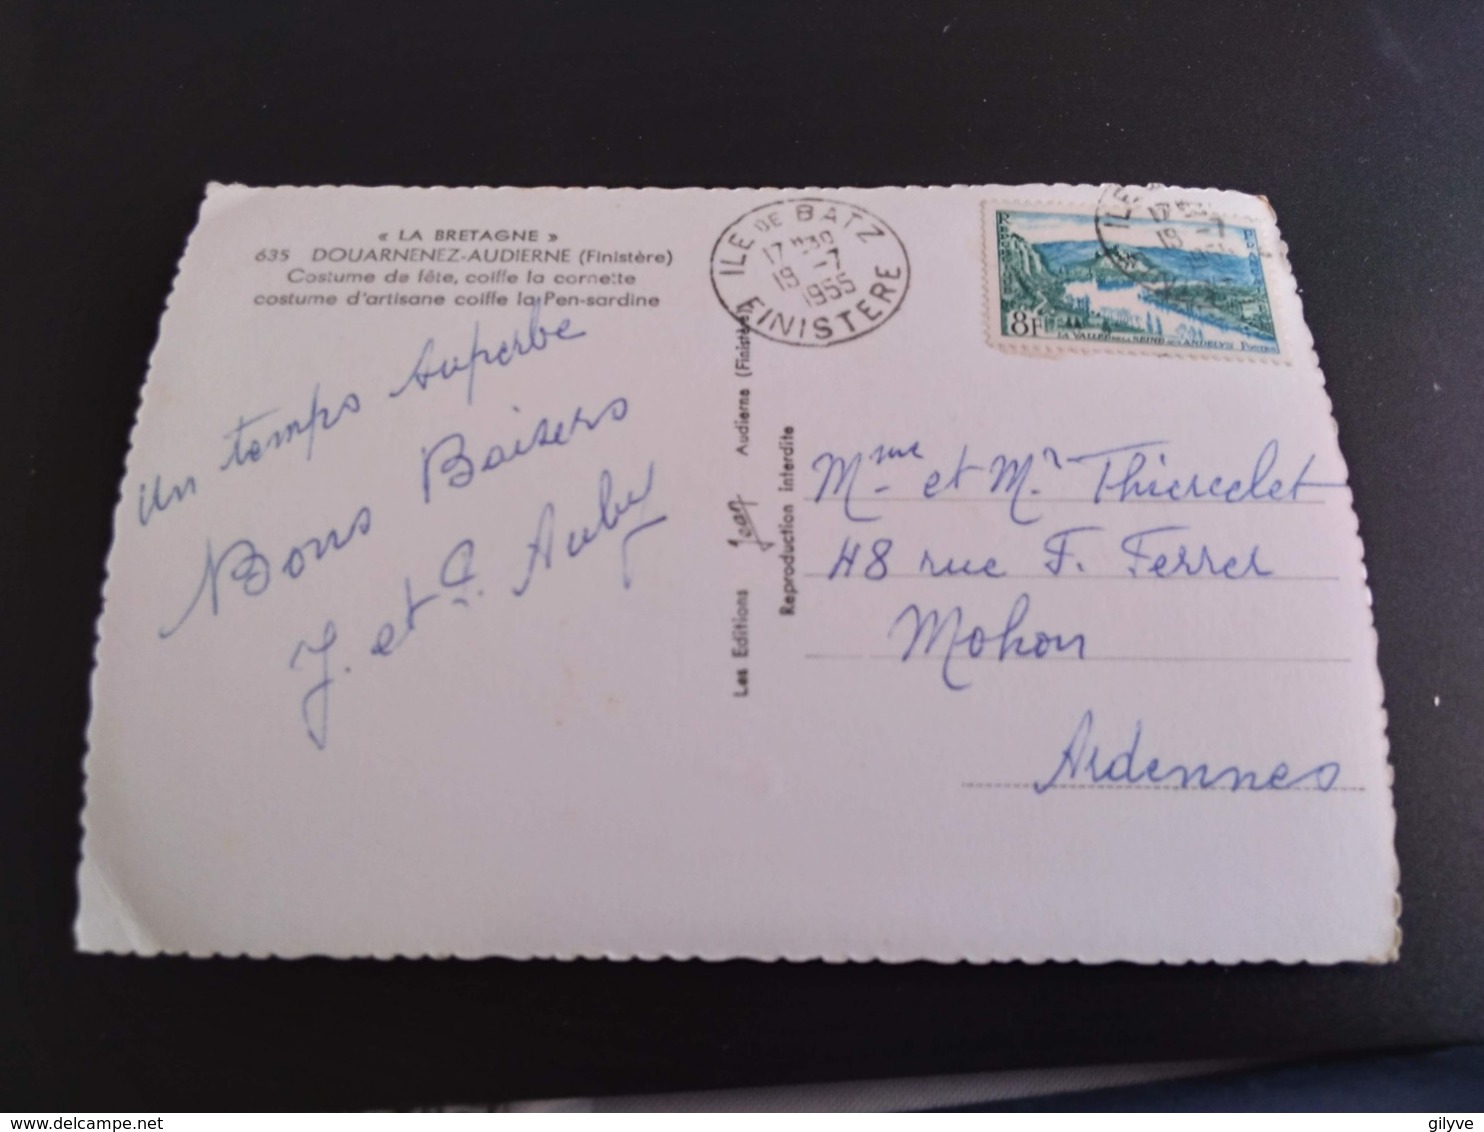 « LA BRETAGNE »
635 DOUARNENEZ-AUDIERNE (Finistère)
Costume de fête, coiffe la cornette
costume d'artisane coiffe la Pen-sardine
un temps superbe
Bons Baisers
J. et C. Auby
Les Editions Jean Audierne (Finistère)
Reproduction interdite
ILE DE BATZ
17H30
19 -7
1955
FINISTERE
8F
LA VALLEE DE LA SEINE AUX ANDELYS POSTES
Mme et Mr Thiercelet
48 rue F. Ferrer
Mohon
Ardennes
delcampe.net
gilyve